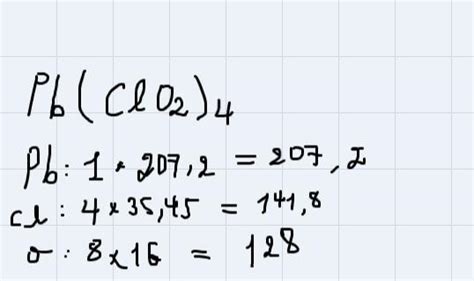 Pb(ClO2)4
Pb: 1 * 207,2 = 207,2
Cl: 4 * 35,45 = 141,8
O: 8 x 16 = 128